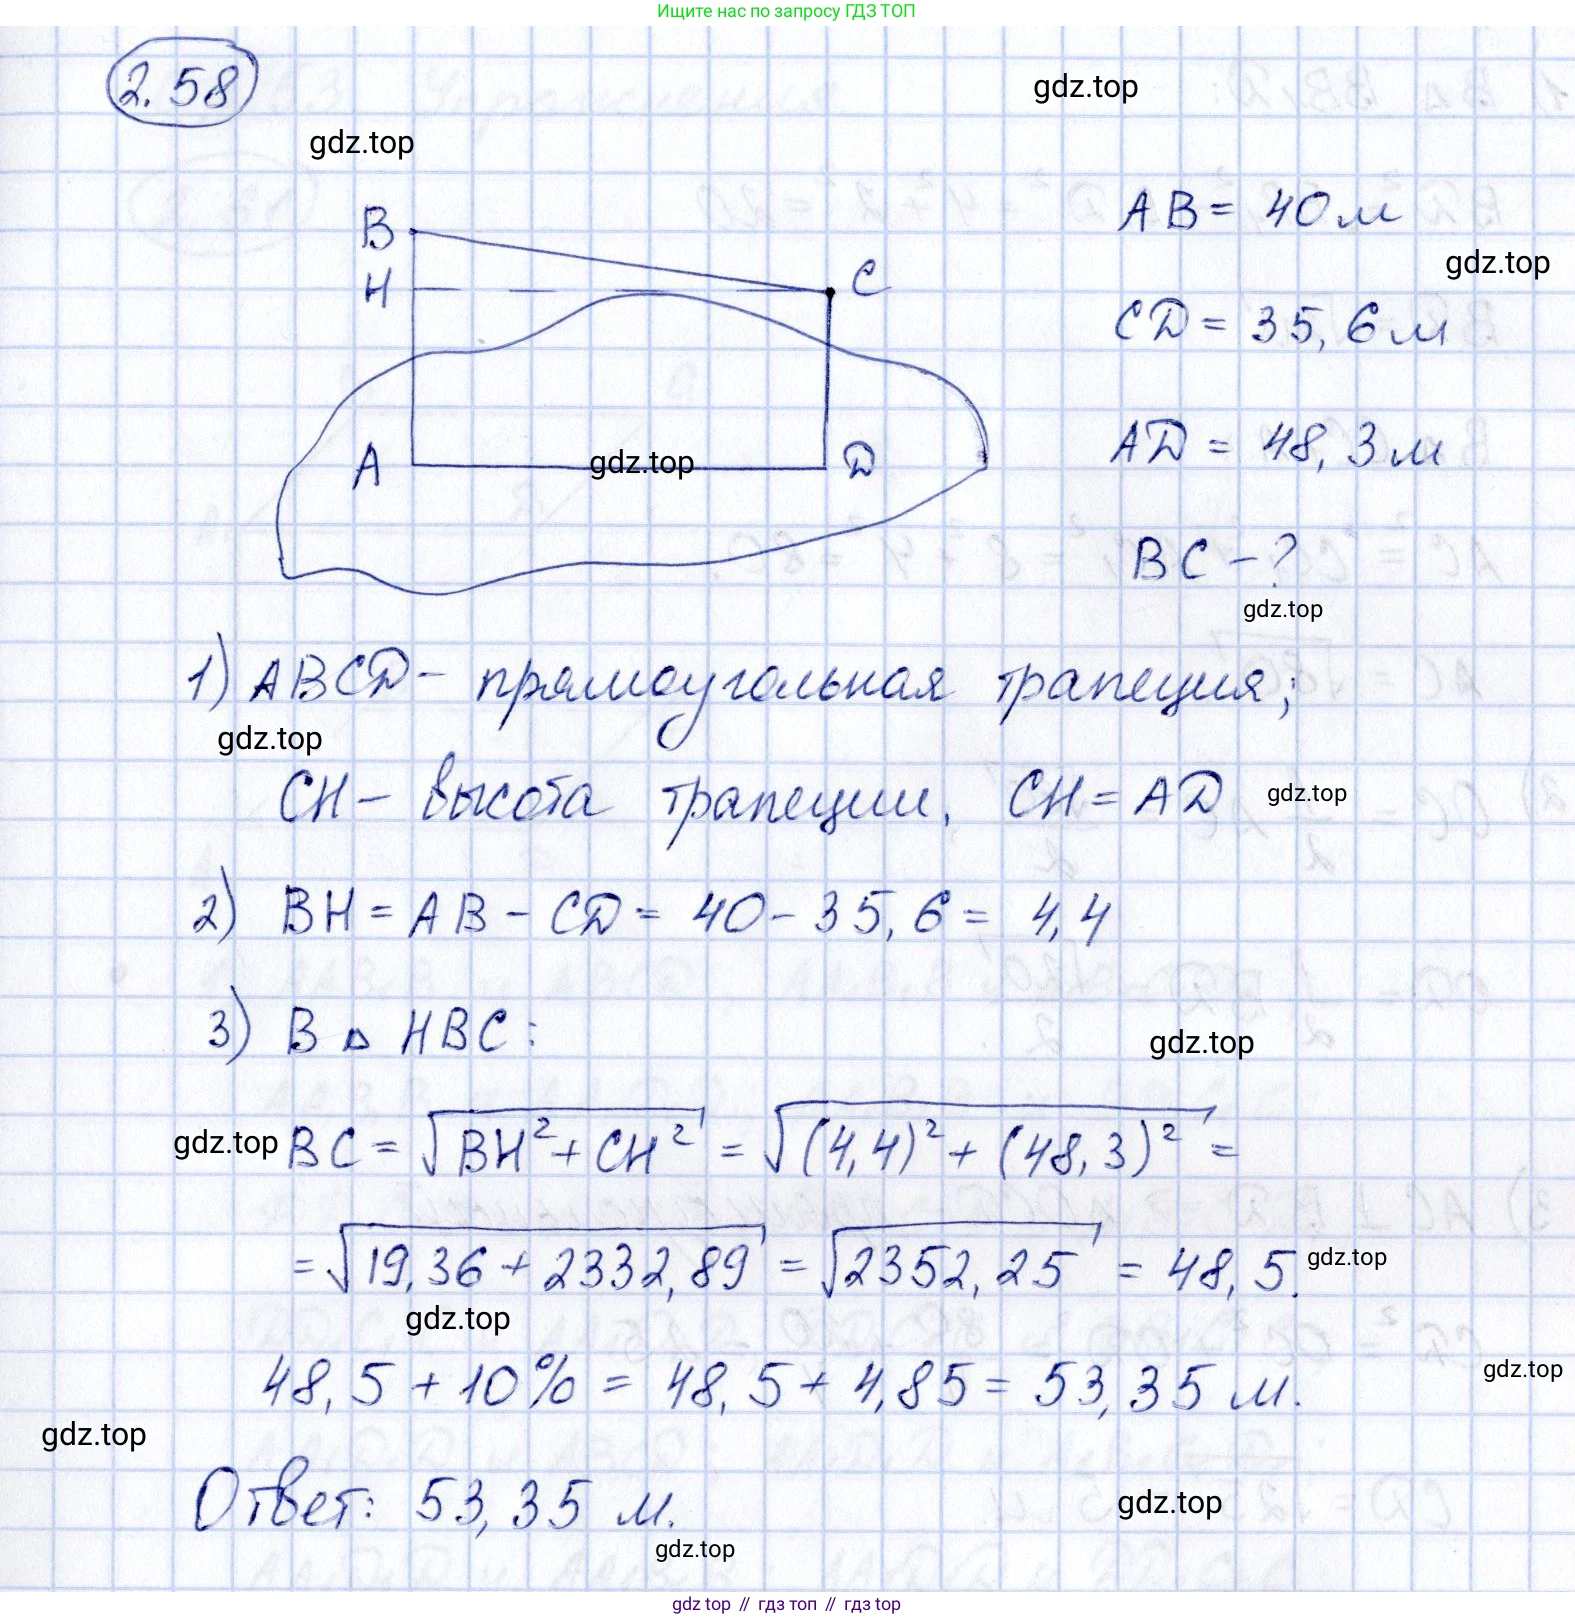 Ищите нас по запросу ГДЗ ТОП
2.58
gdz.top
gdz.top
B
H
C
A
D
gdz.top
AB = 40 м
gdz.top
CD = 35,6 м
AD = 48,3 м
BC - ?
gdz.top
1) ABCD - прямоугольная трапеция;
gdz.top
CH - высота трапеции, CH = AD
gdz.top
2) BH = AB - CD = 40 - 35,6 = 4,4
3) В △ HBC:
gdz.top
gdz.top
BC = √(BH² + CH²) = √((4,4)² + (48,3)²) =
= √(19,36 + 2332,89) = √(2352,25) = 48,5.
gdz.top
gdz.top
48,5 + 10% = 48,5 + 4,85 = 53,35 м.
gdz.top
gdz.top
Ответ: 53,35 м.
gdz.top
gdz.top
gdz top // гдз топ // гдз top